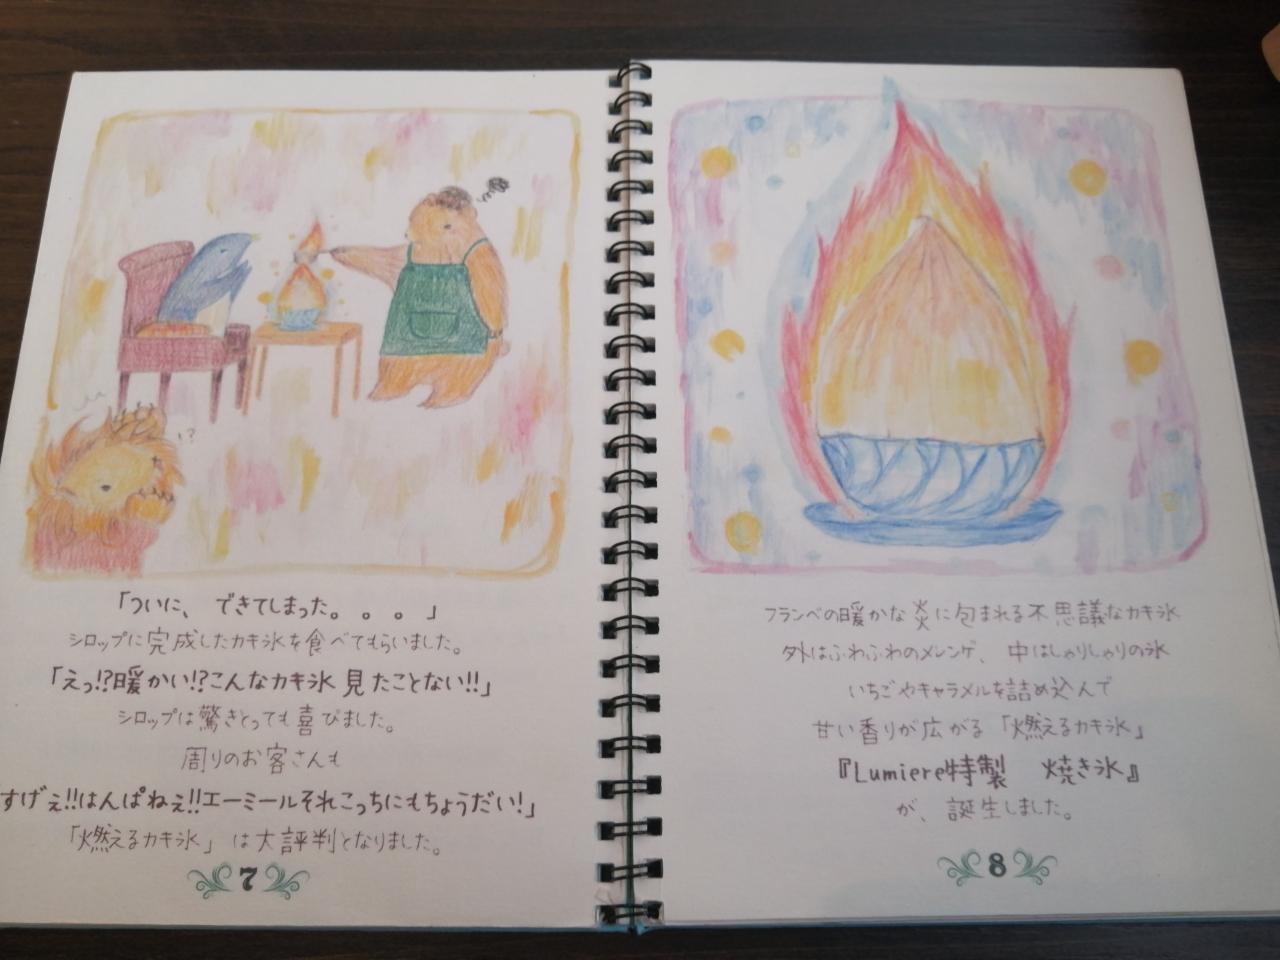 「ついに、できてしまった。。。」
シロップに完成したカキ氷を食べてもらいました。
「えっ!?暖かい!?こんなカキ氷見たことない!!」
シロップは驚きとっても喜びました。
周りのお客さんも
すげぇ!!はんぱねぇ!!エーミールそれこっちにもちょうだい!」
「燃えるカキ氷」は大評判となりました。
7
!?
フランベの暖かな炎に包まれる不思議なカキ氷
外はふわふわのメレンゲ、中はしゃりしゃりの氷
いちごやキャラメルを詰め込んで
甘い香りが広がる「燃えるカキ氷」
『Lumiere特製 焼き氷』
が、誕生しました。
8